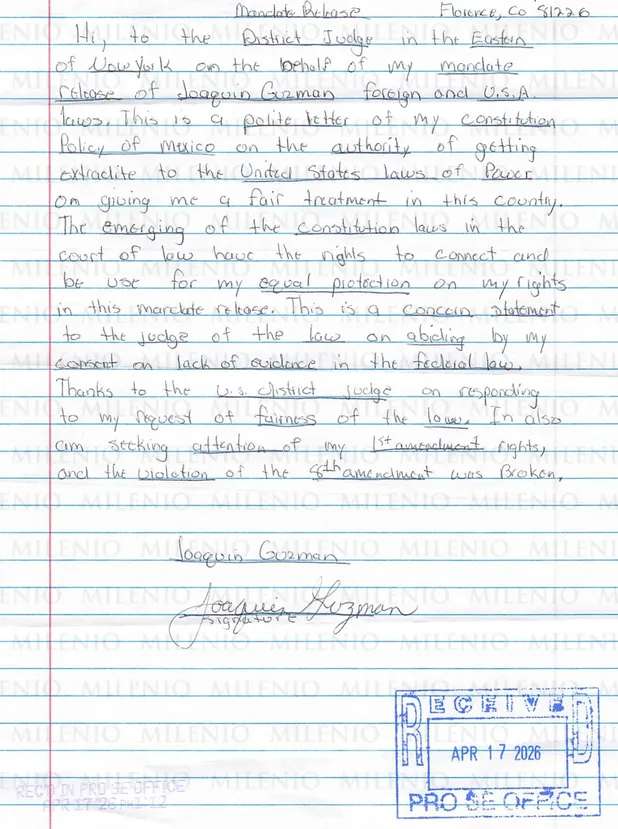 Mandate Release Florence, Co 81226
Hi, to the District Judge in the Eastern
of New York on the behalf of my mandate
release of Joaquin Guzman foreign and U.S.A.
laws. This is a polite letter of my constitution
Policy of Mexico on the authority of getting
extradite to the United States laws of Power
on giving me a fair treatment in this country.
The emerging of the constitution laws in the
court of law have the rights to connect and
be use for my equal protection on my rights
in this mandate release. This is a concern statement
to the judge of the law on abiding by my
consent on lack of evidence in the federal law.
Thanks to the U.S. district judge on responding
to my request of fairness of the law. In also
am seeking attention of my 1st amendment rights,
and the violation of the 8th amendment was Broken.
Joaquin Guzman
Joaquin Guzman
signature
RECEIVED
APR 17 2026
PRO SE OFFICE
REC'D IN PRO SE OFFICE
APR 17 '26
MILENIO